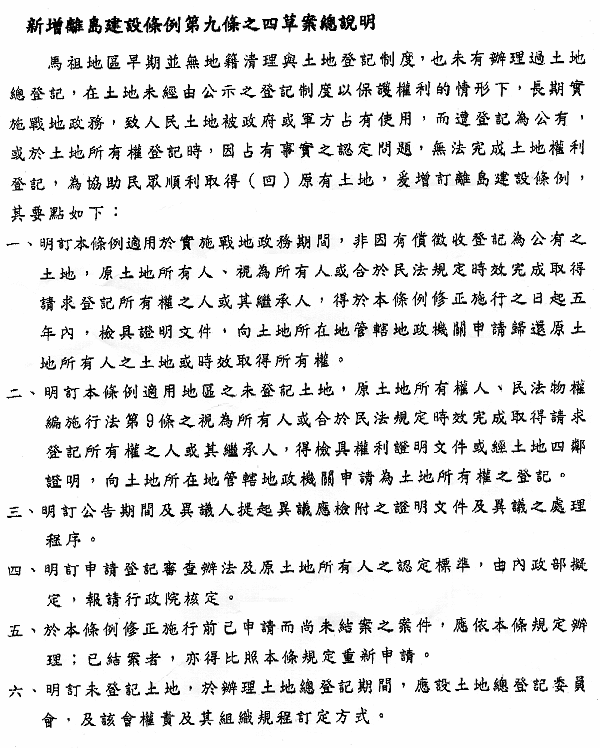 新增離島建設條例第九條之四草案總說明
馬祖地區早期並無地籍清理與土地登記制度，也未有辦理過土地
總登記，在土地未經由公示之登記制度以保護權利的情形下，長期實
施戰地政務，致人民土地被政府或軍方占有使用，而遭登記為公有，
或於土地所有權登記時，因占有事實之認定問題，無法完成土地權利
登記，為協助民眾順利取得（回）原有土地，爰增訂離島建設條例，
其要點如下：
一、明訂本條例適用於實施戰地政務期間，非因有償徵收登記為公有之
土地，原土地所有人、視為所有人或合於民法規定時效完成取得
請求登記所有權之人或其繼承人，得於本條例修正施行之日起五
年內，檢具證明文件，向土地所在地管轄地政機關申請歸還原土
地所有人之土地或時效取得所有權。
二、明訂本條例適用地區之未登記土地，原土地所有權人、民法物權
編施行法第9條之視為所有人或合於民法規定時效完成取得請求
登記所有權之人或其繼承人，得檢具權利證明文件或經土地四鄰
證明，向土地所在地管轄地政機關申請為土地所有權之登記。
三、明訂公告期間及異議人提起異議應檢附之證明文件及異議之處理
程序。
四、明訂申請登記審查辦法及原土地所有人之認定標準，由內政部擬
定，報請行政院核定。
五、於本條例修正施行前已申請而尚未結案之案件，應依本條規定辦
理；已結案者，亦得比照本條規定重新申請。
六、明訂未登記土地，於辦理土地總登記期間，應設土地總登記委員
會，及該會權責及其組織規程訂定方式。